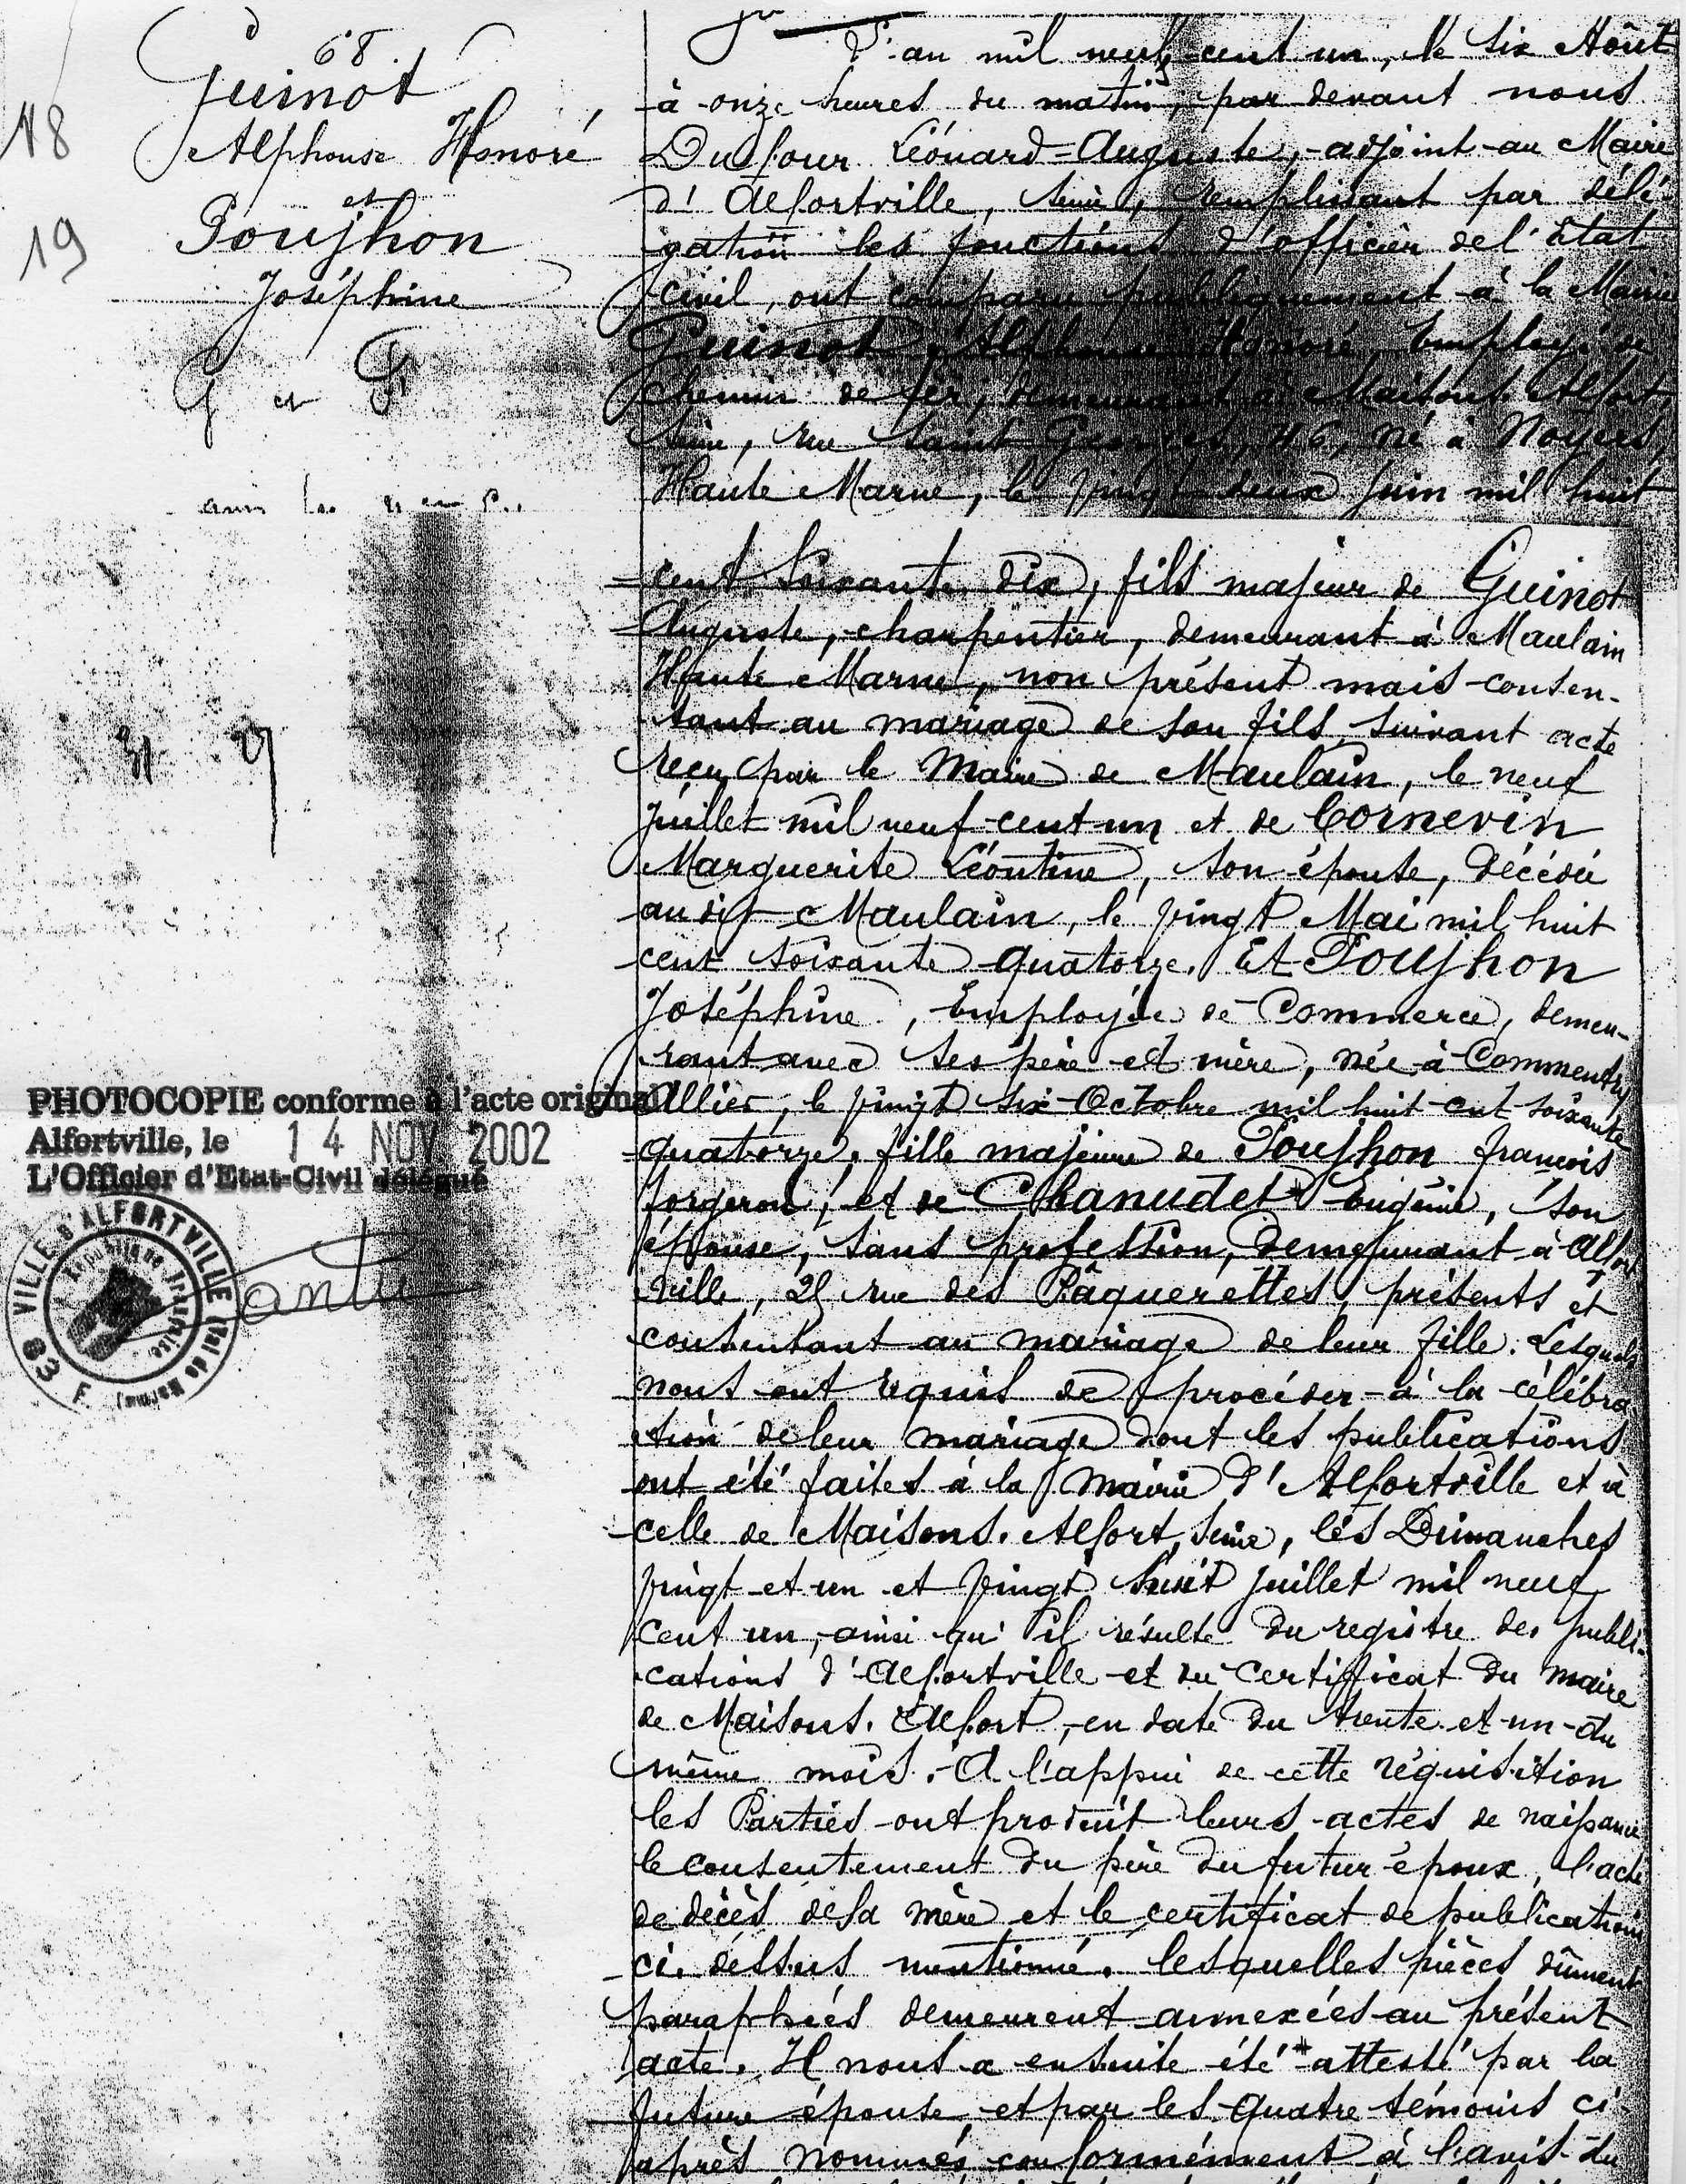 68
Guinot
Alphonse Honoré
et
Poujhon
Joséphine
18
19
G et P
31 27
L'an mil neuf cent un, le six Août
à onze heures du matin, par devant nous
Dufour Léonard-Auguste, adjoint au Maire
d'Alfortville, Seine, remplissant par délé-
gation les fonctions d'officier de l'Etat
civil, ont comparu publiquement à la Mairie
Guinot Alphonse Honoré, Employé de
chemin de fer, demeurant à Maisons-Alfort,
Seine, rue Saint Georges, 46, né à Noyers,
Haute Marne, le vingt deux juin mil huit
cent soixante dix, fils majeur de Guinot
Auguste, charpentier, demeurant à Maulain
Haute Marne, non présent mais consen-
tant au mariage de son fils suivant acte
reçu par le Maire de Maulain, le neuf
juillet mil neuf cent un et de Cornevin
Marguerite Léontine, son épouse, décédée
au dit Maulain, le vingt Mai mil huit
cent soixante quatorze. Et Poujhon
Joséphine, Employée de Commerce, demeu-
rant avec ses père et mère, née à Commentry
Allier, le vingt six Octobre mil huit cent soixante
quatorze, fille majeure de Poujhon François
forgeron, et de Chanudet Eugénie, son
épouse, sans profession, demeurant à Alfort
ville, 25 rue des Pâquerettes, présents et
consentant au mariage de leur fille. Lesquels
nous ont requis de procéder à la célébra
tion de leur mariage dont les publications
ont été faites à la Mairie d'Alfortville et à
celle de Maisons-Alfort, Seine, les Dimanches
vingt et un et vingt huit juillet mil neuf
cent un, ainsi qu'il résulte du registre des publi-
cations d'Alfortville et du certificat du maire
de Maisons-Alfort, en date du trente et un du
même mois. A l'appui de cette réquisition
les Parties ont produit leurs actes de naissance
le consentement du père du futur époux, l'acte
de décès de sa mère et le certificat de publications
ci-dessus mentionné. lesquelles pièces dûment
paraphées demeurent annexées au présent
acte. Il nous a ensuite été attesté par la
future épouse et par les quatre témoins ci-
après nommés conformément à l'avis du
PHOTOCOPIE conforme à l'acte original
Alfortville, le 14 NOV. 2002
L'Officier d'Etat-Civil délégué
VILLE D'ALFORTVILLE (Val de Marne)
République Française